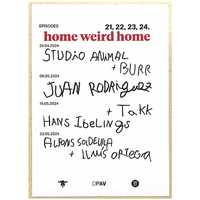 EPISODES
21, 22, 23, 24.
home weird home
24.04.2024
STUDIO ANIMAL
+ BURR
JUAN RODRIGUEZ
15.05.2024
+ TAKK
HANS IBELINGS
22.05.2024
ALFONS SOLDEVILA
+ LLUÍS ORTEGA
DPAV